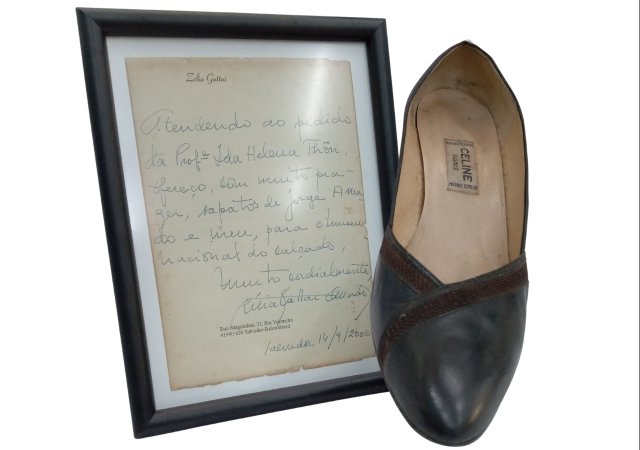 Zélia Gattai
Atendendo ao pedido
da Profª Ida Helena Thön,
ofereço, com muito pra-
zer, sapatos de Jorge Ama-
do e meu, para o museu
Nacional do calçado,
Muito cordialmente,
Zélia Gattai Amado
Rua Alagoinhas, 33, Rio Vermelho
41940-620 Salvador Bahia Brasil
Salvador, 14/9/2000
CELINE
PARIS